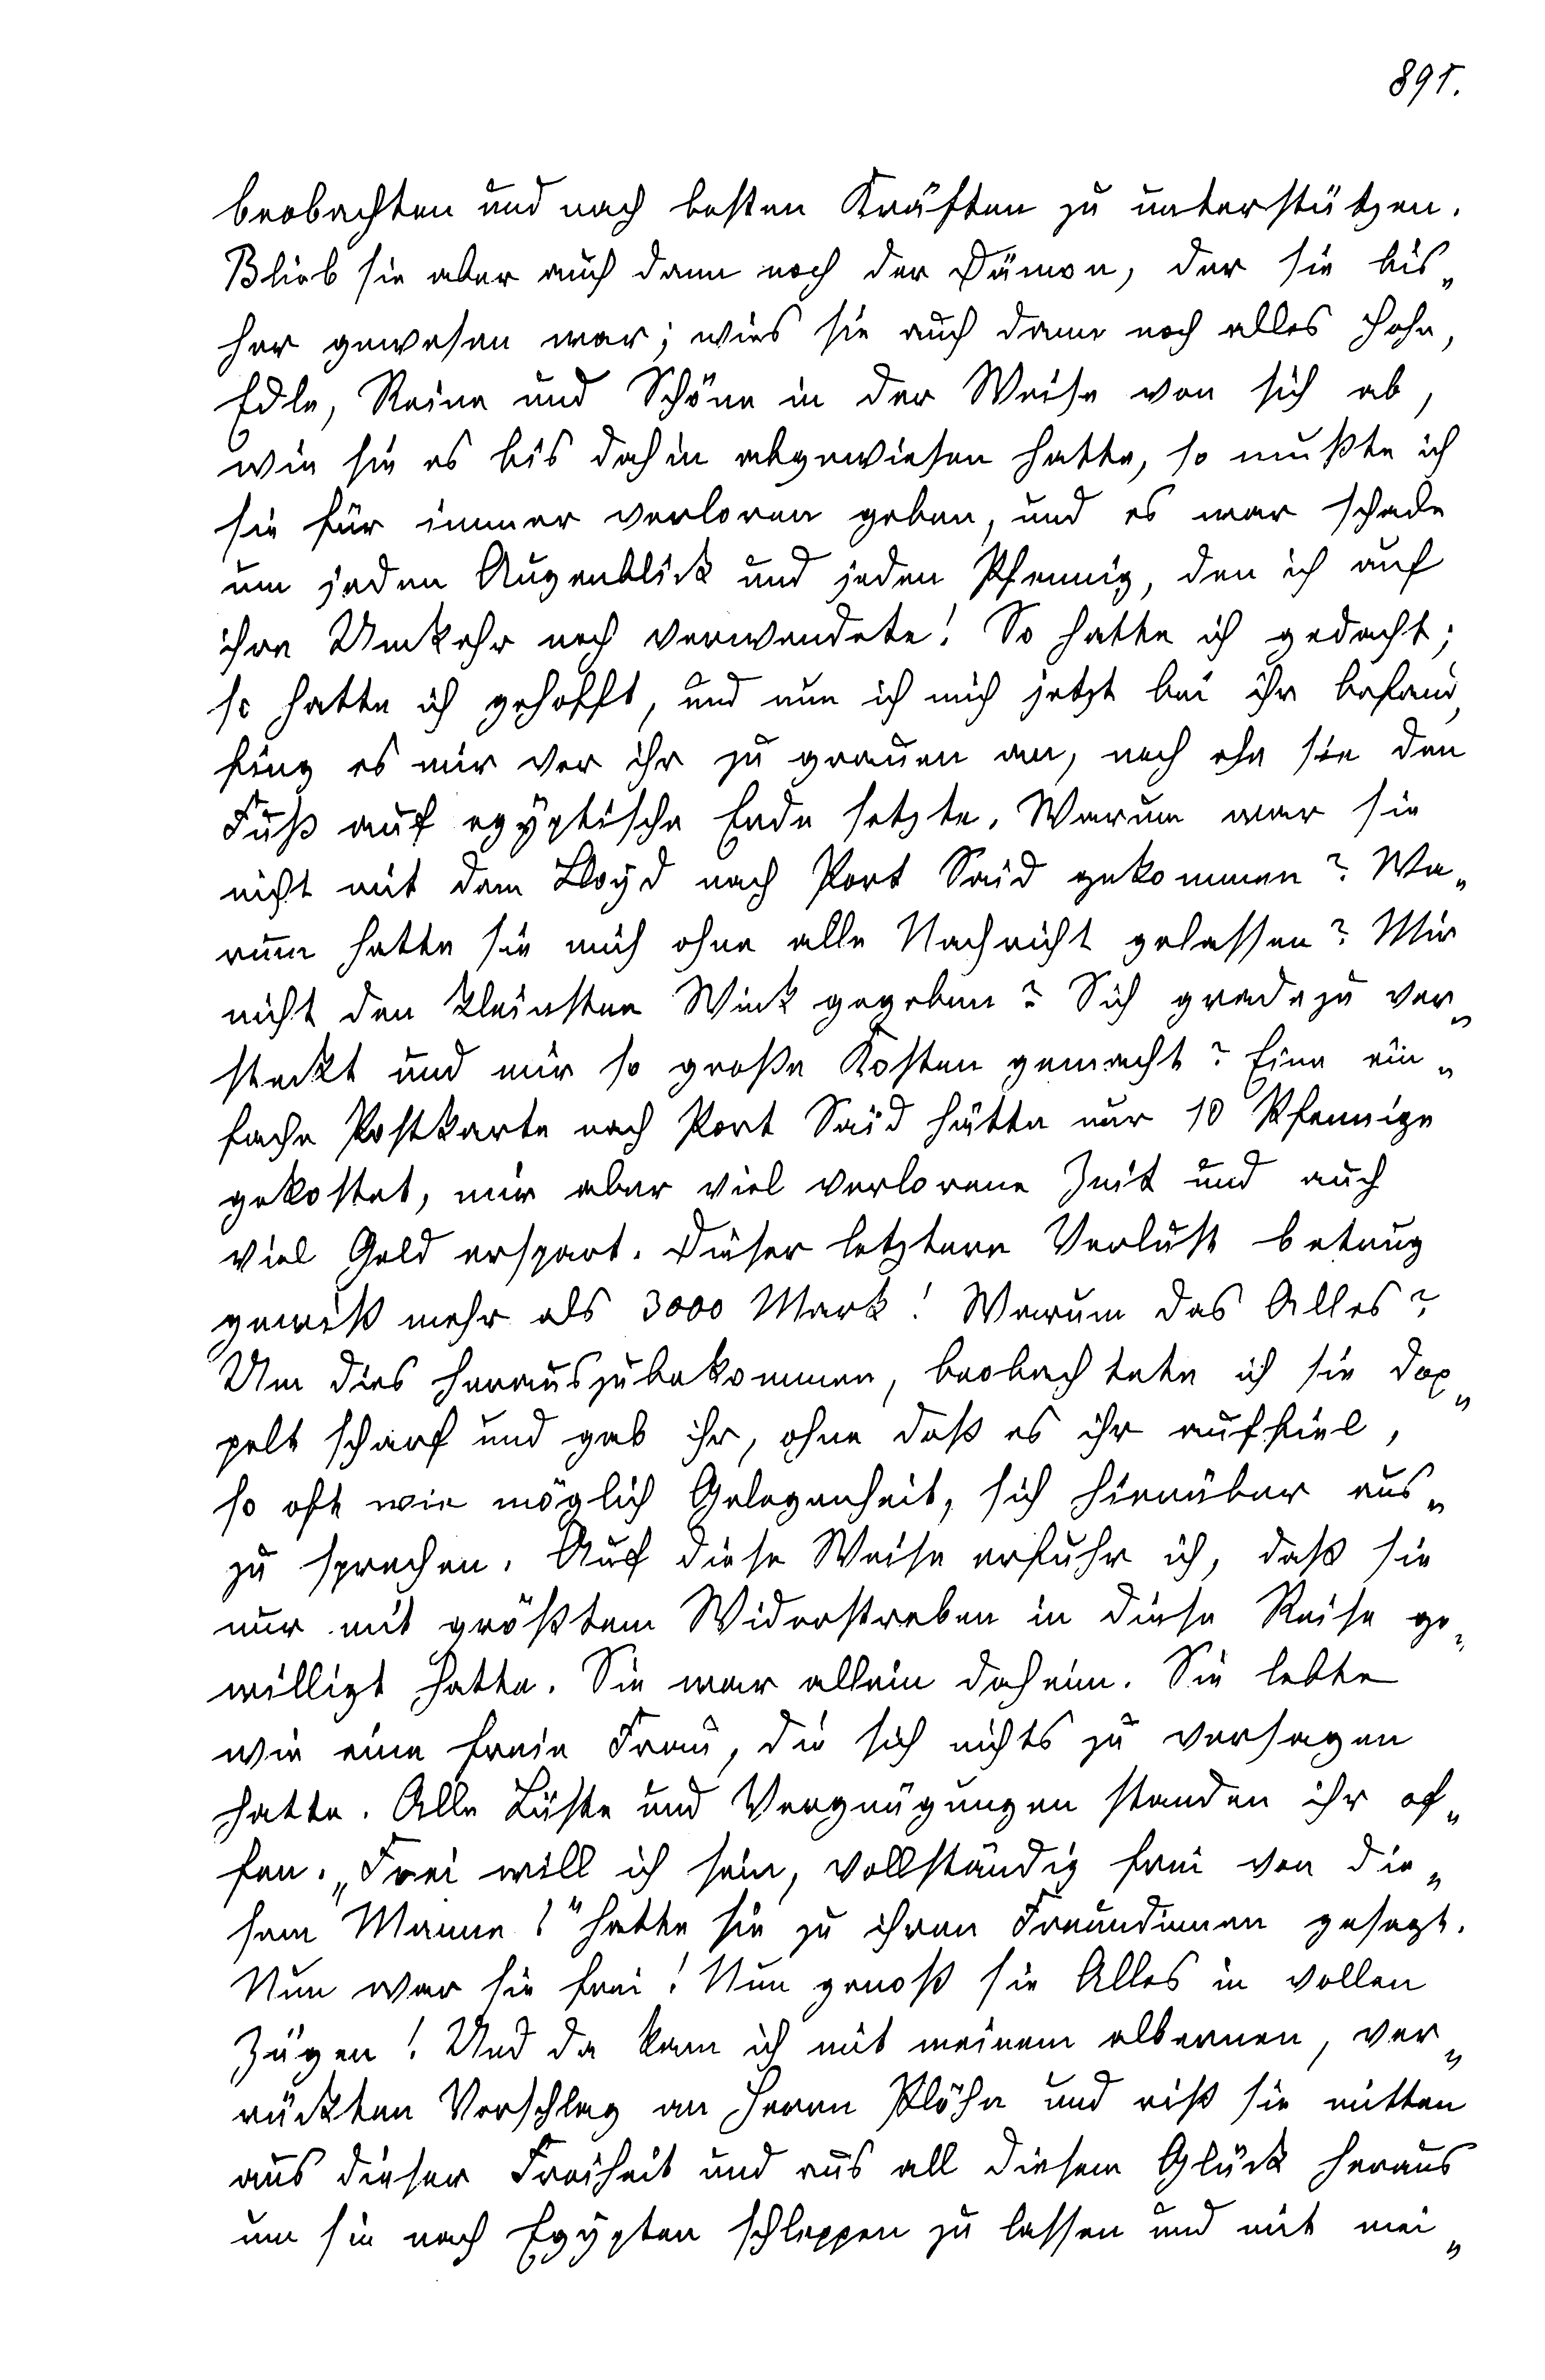 891.
beobachten und nach besten Kräften zu unterstützen.
Blieb sie aber auch dann noch der Dämon, der sie bis„
her gewesen war; wies sie auch dann noch alles Hohe,
Edle, Reine und Schöne in der Weise von sich ab,
wie sie es bis dahin abgewiesen hatte, so mußte ich
sie für immer verloren geben, und es war schade
um jeden Augenblick und jeden Pfennig, den ich auf
ihre Umkehr noch verwendete! So hatte ich gedacht;
so hatte ich gehofft, und nun ich mich jetzt bei ihr befand,
fing es mir vor ihr zu grauen an, noch ehe sie den
Fuß auf egyptische Erde setzte. Warum war sie
nicht mit dem Lloyd nach Port Said gekommen? Wa„
rum hatte sie mich ohne alle Nachricht gelassen? Mir
nicht den kleinsten Wink gegeben? Sich gradezu ver„
steckt und mir so große Kosten gemacht? Eine ein„
fache Postkarte nach Port Said hätte nur 10 Pfennige
gekostet, mir aber viel verlorene Zeit und auch
viel Geld erspart. Dieser letztere Verlust betrug
gewiß mehr als 3000 Mark! Warum das Alles?
Um dies herauszubekommen, beobachtete ich sie dop„
pelt scharf und gab ihr, ohne daß es ihr auffiel,
so oft wie möglich Gelegenheit, sich hierüber aus„
zu sprechen. Auf diese Weise erfuhr ich, daß sie
nur mit größtem Widerstreben in diese Reise ge„
willigt hatte. Sie war allein daheim. Sie lebte
wie eine freie Frau, die sich nichts zu versagen
hatte. Alle Lüste und Vergnügungen standen ihr of„
fen. „Frei will ich sein, vollständig frei von die„
sem Manne!" hatte sie zu ihren Freundinnen gesagt.
Nun war sie frei! Nun genoß sie Alles in vollen
Zügen! Und da kam ich mit meinem albernen, ver„
rückten Vorschlag an Herrn Plöhn und riß sie mitten
aus dieser Freiheit und aus all diesem Glück heraus
um sie nach Egypten schleppen zu lassen und mit mei„